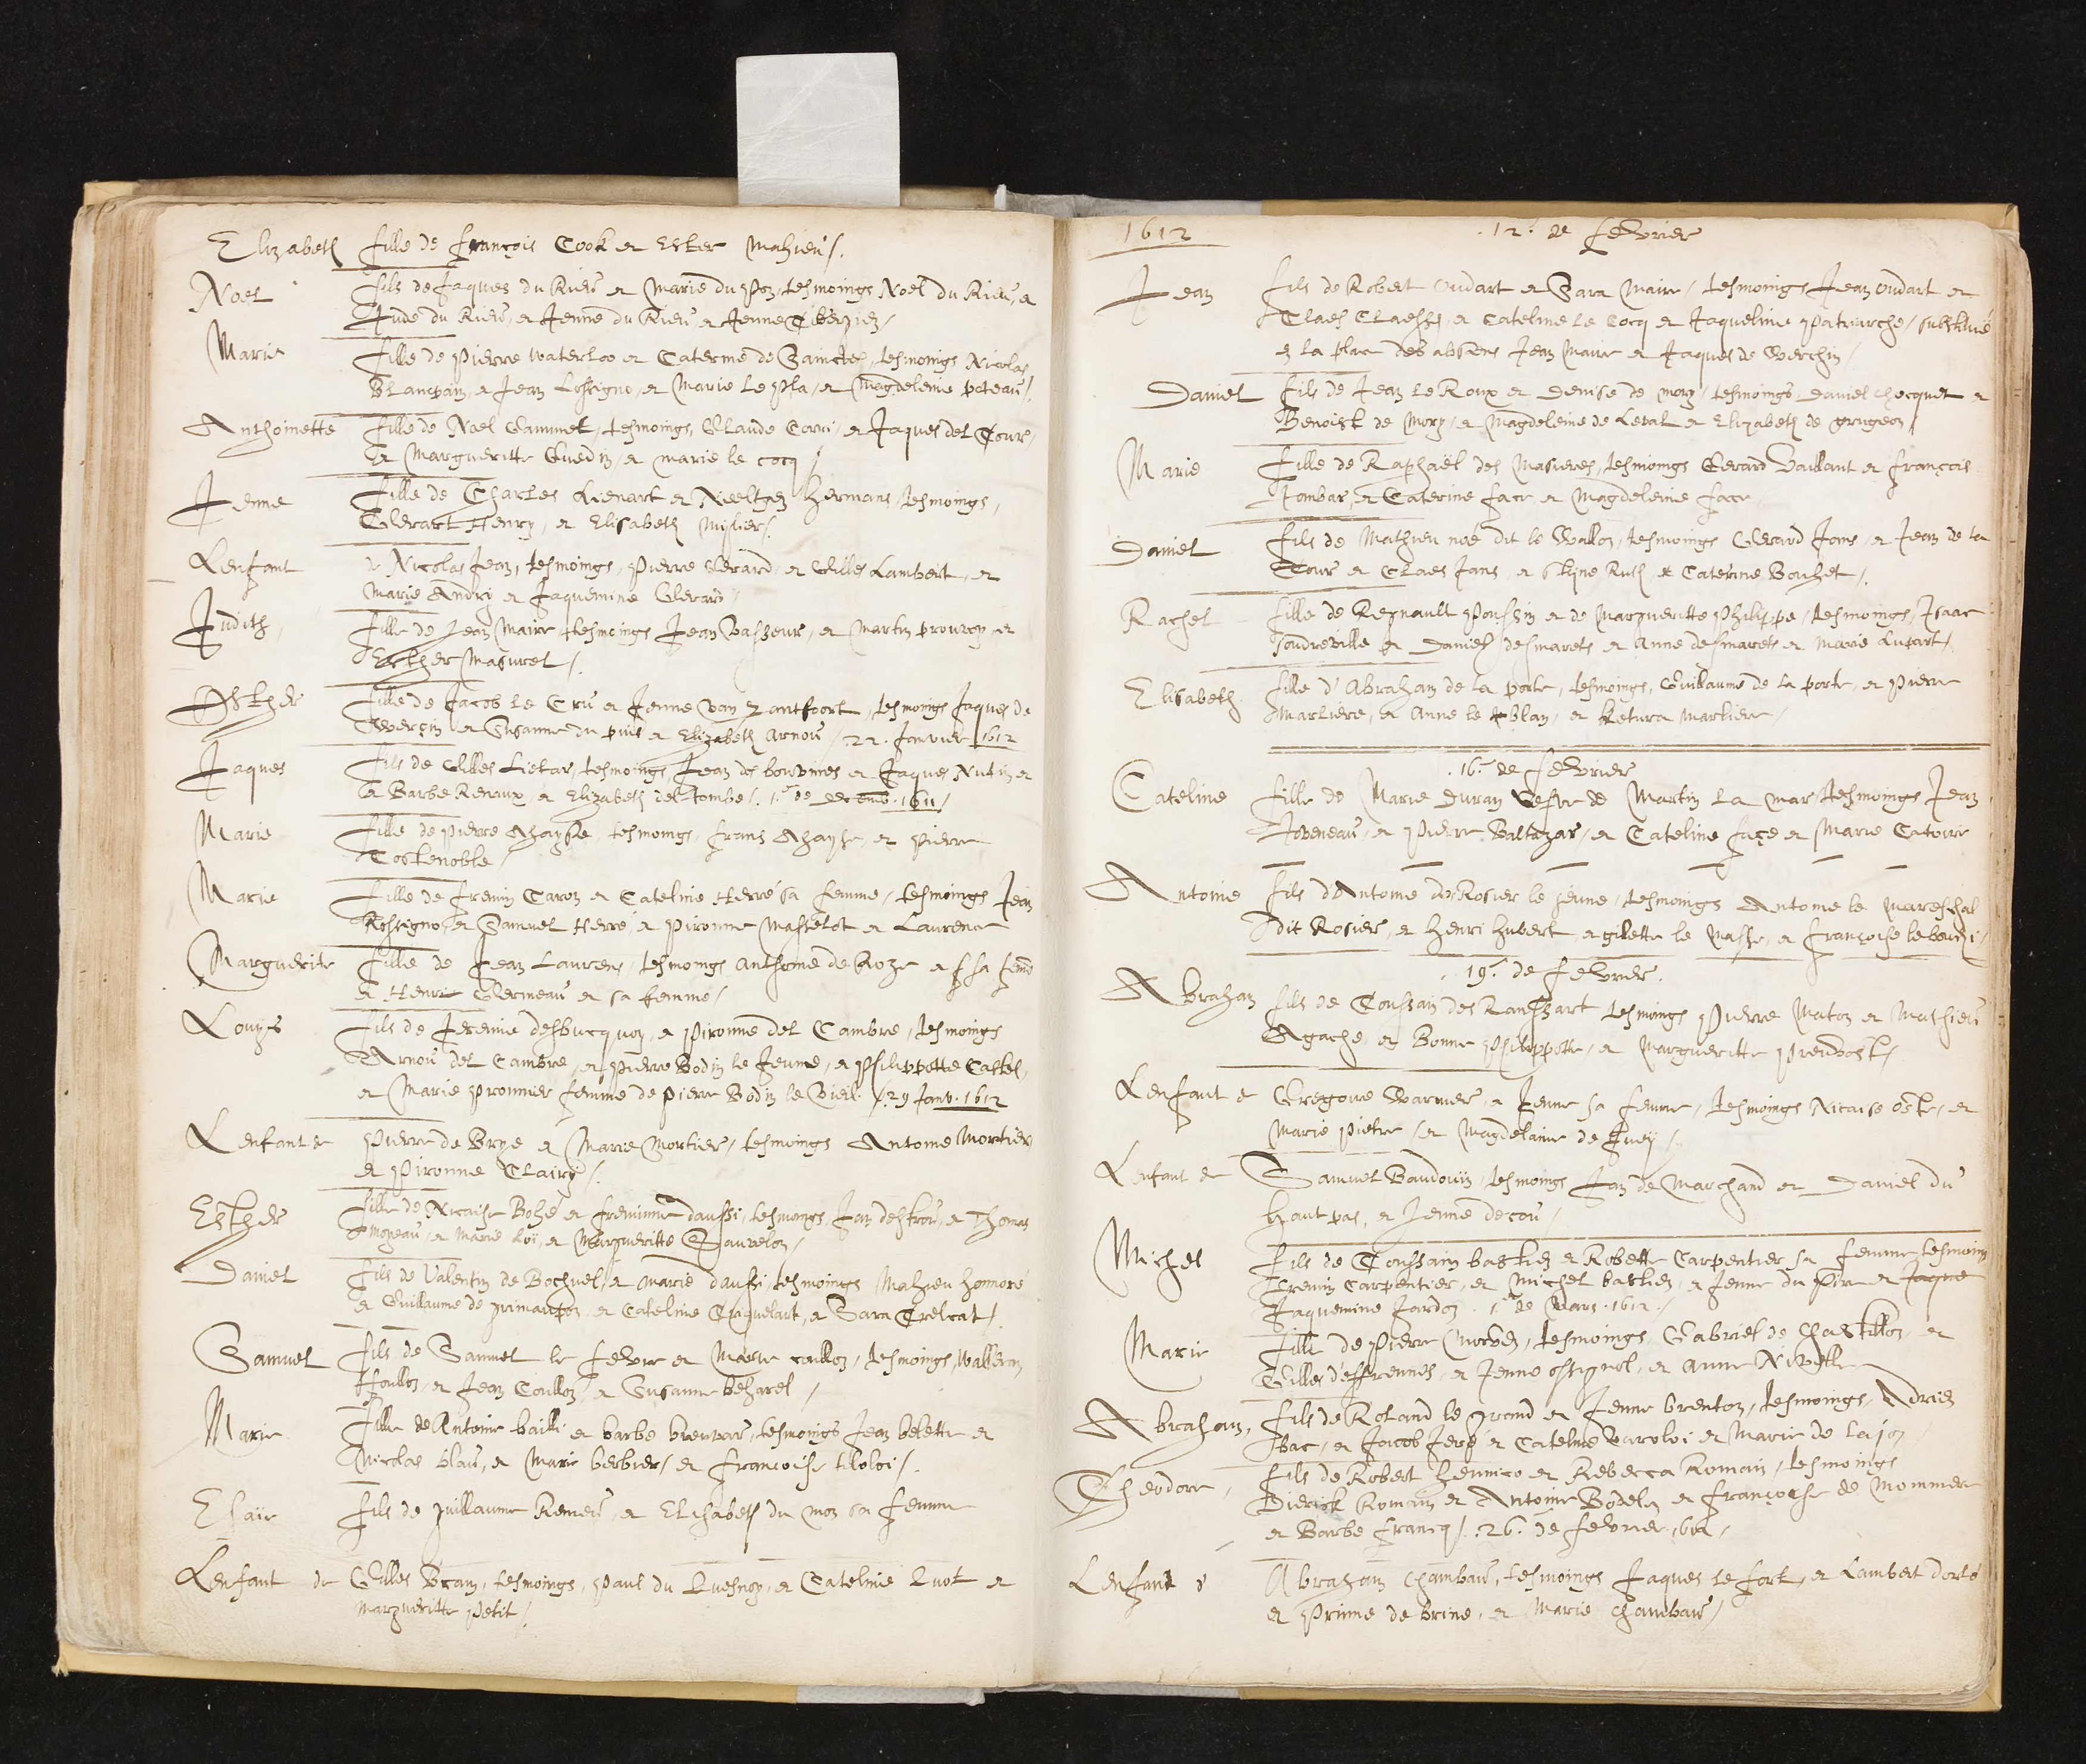 Elizabeth fille de françois Cook et Ester Mahieu.
Noel fils de Jaques du Rieu et Marie du Pon, tesmoings Noel du Rieu, et
Jude du Rieu, et Jenne du Rieu, et Jenne
Marie fille de Pierre Waterloo et Caterine de tesmoings Nicolas
Blancpain, et Jean Lossigno, et Marie le Pla, et Magdeleine poteau
Anthoinette fille de Noel Gammel, tesmoings, Claude Carri et Jaques del Tour,
et Margueritte Guedin, et marie le cocq
Jenne fille de Charles Lienart et Neeltgen hermans, tesmoings,
Gerart Henry, et Elisabeth
Lenfant de Nicolas Jean, tesmoings, Pierre Gerard et Gilles Lambert, et
Marie Andri et Jaquemine Gerard
Judith, fille de Jean Maire tesmoings Jean Vasseur, et Martin prouvey et
Esther Masurel.
Esther fille de Jacob le Cru et Jenne van Zantfoort, tesmoings Jaques de
Werçin et Susanne du puis et Elizabeth Arnou 22. Janvier 1612
Jaques fils de Gilles Lietar, tesmoings Jean de bouvines et Jaques Nutin et
et Barbe Renaux et Elizabeth del tombe. 1. de decemb. 1611
Marie fille de pierre Ahayse tesmoings, frans Ahayse et pierre
Costenoble
Marie fille de fremin Caron et Cateline Herre sa femme, tesmoings Jean
Rossigno, et Samuel Herre et Pironne Masselot et Laurence
Marguerite fille de Jean Laurens, tesmoings Anthoine de Roze et sa feme
et Henri Germeau et sa femme
Louys fils de Jeremie desbucquoy, et Pironne del Cambre, tesmoings
Arnou del Cambre, et Pierre Bodin le Jeune, et Philippotte Castel,
et Marie Pronnier femme de pierre Bodin le Vieil. 29 Janv. 1612
Lenfant de Pierre de Brye et Marie Mortier, tesmoings Antoine Mortier
et Pironne Clairy.
Esther fille de Nicaise Bohe et fremine daussi, tesmoings Jan et Thomas
Moreau, et Marie Loi, et Margueritte Sauvelon
Daniel fils de Valentin de Bochuel, et Marie daussi, tesmoings Mahieu honnoré
et Guillaume de et Cateline Criquelart, et Sara Crelcat.
Samuel fils de Samuel le febvre et Marie coullon, tesmoings, Walleran
Houllon, et Jean Coullon et Susanne beharel
Marie fille de Antoine bailli et barbe tesmoings Jean belette et
Nicolas blau, et Marie berbier, et françoise
Esaïe fils de guillaume Remeu, et Elisabeth du mon sa femme
Lenfant de Gilles Bran, tesmoings, Paul du Quesnoy, et Cateline Quot et
Margueritte Petit.
1612 12. de febvrier
Jean fils de Robert Oudart et Sara Maire, tesmoings Jean Oudart et
Claes Claessen, et Cateline le Cocq et Jaqueline Patriarche, substitué
en la place des absens Jean Maire et Jaques de Werchin
Daniel fils de Jean le Roux et Denise de mory, tesmoings Daniel chocquet et
Benoist de Mory, et Magdeleine de Leval et Elizabeth de grugeon
Marie fille de Raphaël des Masieres, tesmoings Gerard Vaillant et françois
Jombar, et Caterine face et Magdeleine face
Daniel fils de Mathieu noé dit le Wallon, tesmoings Gerard Jans, et Jean de la
Tour et Claes Jans, et Styne Rush et Caterine Bouhet.
Rachel fille de Regnault Poussin et de Margueritte Philippe, tesmoings, Isaac
et Daniel desmarets et Anne desmarets et Marie Lusart.
Elisabeth fille d'Abraham de la porte, tesmoings, Guillaume de la porte, et Pierre
Marliere, et Anne le blan, et Ketura Marliere
16. de febvrier
Cateline fille de Marie Duray Vefve de Martin la mar, tesmoings Jean
Joveneau, et Pierre Baltazar, et Cateline façe et Marie Catoire
Antoine fils d'Antoine de Rosier le jeune, tesmoings Antoine le Mareschal
dit Rosier, et henri hubert, et gilette le Masse, et françoise
19. de febvrier.
Abraham fils de Toussain des Ranssart tesmoings Pierre Maton et Mathieu
Agache, et Bonne Philippotte, et Margueritte Prendvost,
Lenfant de Gregoire Warnier, et Jenne sa femme, tesmoings Nicaise oste, et
Marie Pietre, et Magdelaine de
Lenfant de Samuel Baudouin, tesmoings Jan de Marchand et Daniel du
haut pas, et Jenne decou
Michel fils de Toussain bastien et Robette Carpentier sa femme tesmoins
fremin Carpentier, et Michel bastien, et Jenne du Pire et Jaque
Jaquemine Jardon. 1. de Mars. 1612.
Marie fille de Pierre tesmoings Gabriel de Chastillon, et
Gilles et Jenne et Anne Nivelle
Abraham, fils de Roland le grand et Jenne brenton, tesmoings, Adrien
bac, et Jacob et Cateline et Marie de
Theodore, fils de Robert hennico et Rebecca Romain, tesmoings
Dierick Romain et Antoine Bodelen et françoise de Mommere
et Barbe francq. 26. de febvrier, 1612
Lenfant d Abraham Chambau, tesmoings Jaques le fort, et Lambert dorlé
et Prinne de brine, et Marie Chambau